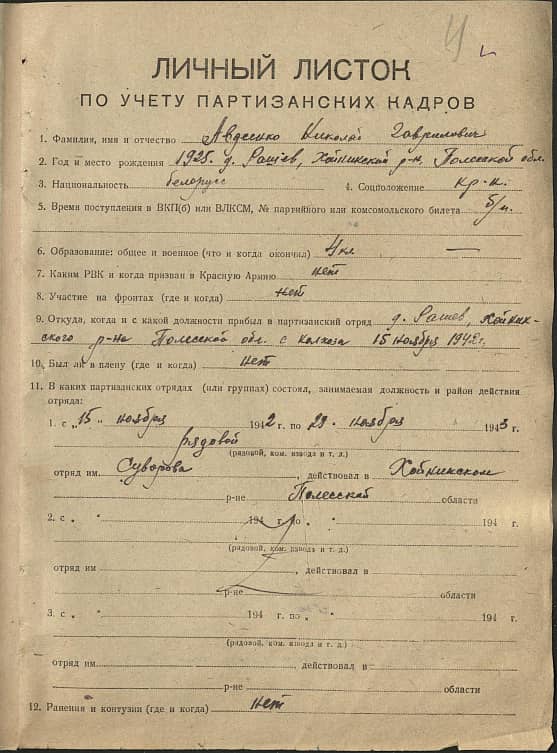 4
ЛИЧНЫЙ ЛИСТОК
ПО УЧЕТУ ПАРТИЗАНСКИХ КАДРОВ
1. Фамилия, имя и отчество Авдеенко Николай Гаврилович
2. Год и место рождения 1925. д. Рашев, Хойникский р-н, Полесской обл.
3. Национальность белорусс 4. Соцположение кр-н.
5. Время поступления в ВКП(б) или ВЛКСМ, № партийного или комсомольского билета б/п.
6. Образование: общее и военное (что и когда окончил) 4 кл —
7. Каким РВК и когда призван в Красную Армию нет
8. Участие на фронтах (где и когда) нет
9. Откуда, когда и с какой должности прибыл в партизанский отряд д. Рашев, Хойник-
ского р-на Полесской обл. с колхоза 15 ноября 1942 г.
10. Был ли в плену (где и когда) нет
11. В каких партизанских отрядах (или группах) состоял, занимаемая должность и район действия
отряда:
1. с „15„ ноября 1942 г. по 29. ноября 1943 г.
рядовой
(рядовой, ком. взвода и т. д.)
отряд им. Суворова, действовал в Хойникском
р-не Полесской области
2. с „ " 194 г. по „ " 194 г.
(рядовой, ком. взвода и т. д.)
отряд им , действовал в
р-не области
3. с „ " 194 г. по „ " 194 г.
(рядовой, ком. взвода и т. д.)
отряд им , действовал в
р-не области
12. Ранения и контузии (где и когда) нет